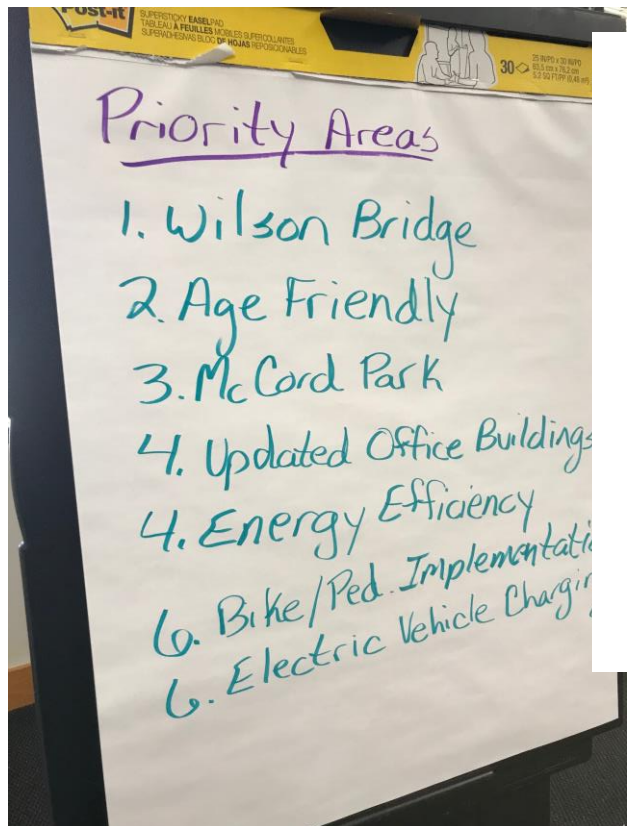 Post-it
SUPERSTICKY EASELPAD
TABLEAU À FEUILLES MOBILES SUPERCOLLANTES
SUPERADHESIVAS BLOC DE HOJAS REPOSICIONABLES
30
25 IN/PO x 30 IN/PO
63,5 cm x 76,2 cm
5.2 SQ FT/PI² (0,48 m²)
Priority Areas
1. Wilson Bridge
2. Age Friendly
3. McCord Park
4. Updated Office Buildings
4. Energy Efficiency
6. Bike/Ped. Implementati
6. Electric Vehicle Chargin